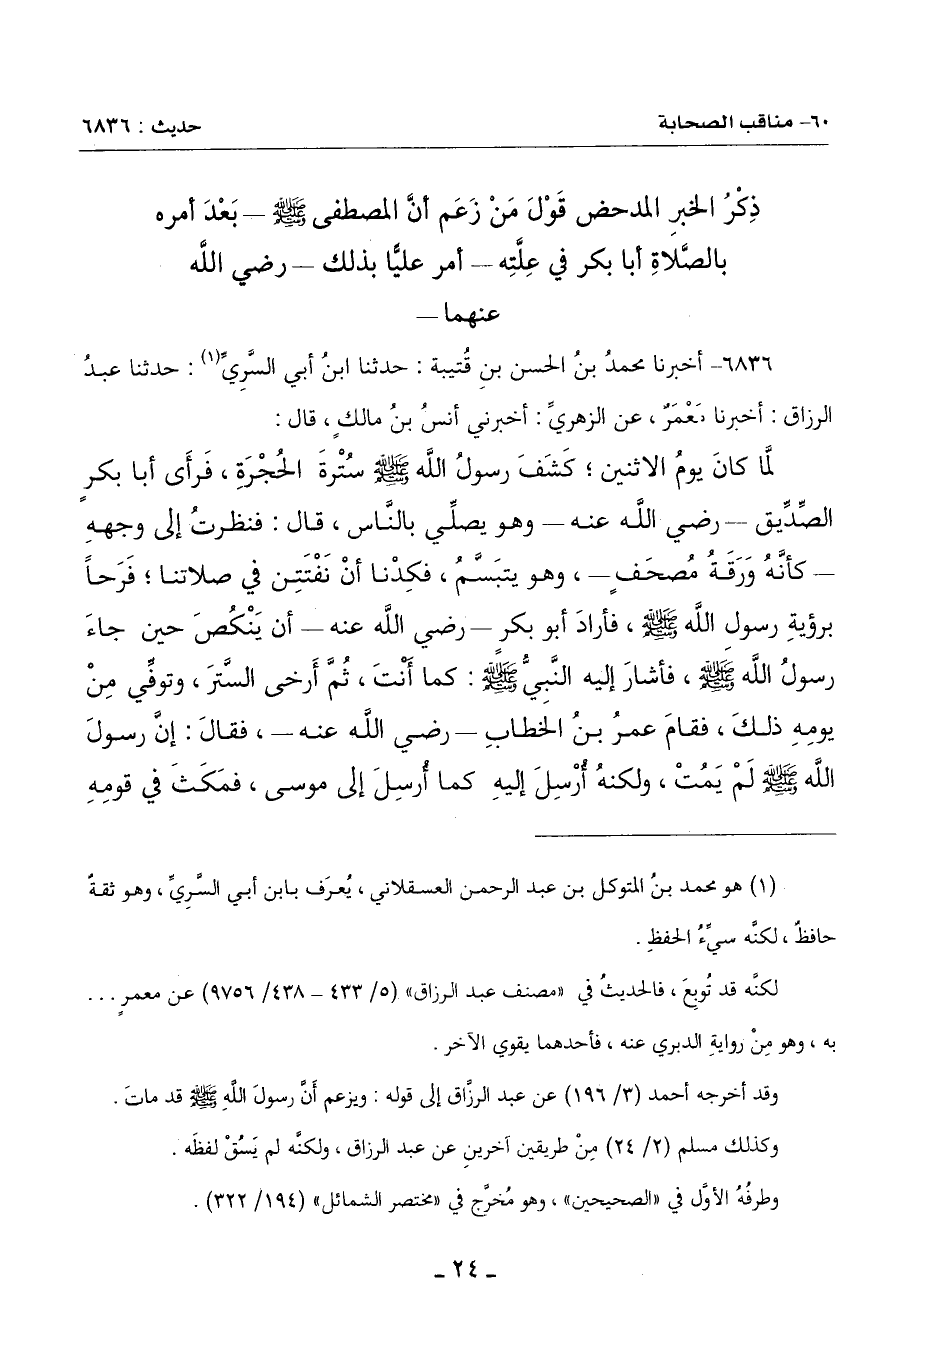 ٦٠- مناقب الصحابة حديث : ٦٨٣٦
ذِكْرُ الخبرِ المدحض قَوْلَ مَنْ زَعَم أنَّ المصطفى ﷺ – بَعْدَ أمره
بالصَّلاةِ أبا بكر في عِلَّتِه – أمر عليًّا بذلك – رضي اللَّه
عنهما –
٦٨٣٦- أخبرنا محمدُ بنُ الحسن بنِ قُتيبة : حدثنا ابنُ أبي السَّريِّ(١) : حدثنا عبدُ
الرزاق : أخبرنا مَعْمَرٌ ، عن الزهريِّ : أخبرني أنسُ بنُ مالكٍ ، قال :
لمَّا كانَ يومُ الاثنين ؛ كَشَفَ رسولُ اللَّه ﷺ سُتْرةَ الحُجْرَةِ ، فَرأَى أبا بكرٍ
الصِّدِّيق –رضي اللَّه عنه – وهو يصلِّي بالنَّاس ، قال : فنظرتُ إلى وجههِ
– كأنَّهُ وَرَقَةُ مُصحَفٍ – ، وهو يتبَسَّمُ ، فكِدْنا أنْ نَفْتَتِن في صلاتنا ؛ فَرَحاً
برؤيةِ رسولِ اللَّه ﷺ ، فأرادَ أبو بكرٍ – رضي اللَّه عنه – أن يَنْكُصَ حين جاءَ
رسولُ اللَّه ﷺ ، فأشارَ إليه النَّبيُّ ﷺ : كما أَنْتَ ، ثُمَّ أَرخى السترَ ، وتوفِّي مِنْ
يومِهِ ذلكَ ، فقامَ عمرُ بنُ الخطابِ – رضي اللَّه عنه – ، فقالَ : إنَّ رسولَ
اللَّه ﷺ لَمْ يَمُتْ ، ولكنهُ أُرْسِلَ إليهِ كما أُرسِلَ إلى موسى ، فمَكَثَ في قومِهِ
(١) هو محمد بنُ المتوكل بن عبد الرحمن العسقلاني ، يُعرَف بابن أبي السَّريِّ ، وهو ثقةٌ
حافظٌ ، لكنَّه سيِّءُ الحفظِ .
لكنَّه قد تُوبِعَ ، فالحديثُ في «مصنف عبد الرزاق» (٥/ ٤٣٣ – ٤٣٨/ ٩٧٥٦) عن معمرٍ ...
به ، وهو مِنْ روايةِ الدبري عنه ، فأحدهما يقوي الآخر .
وقد أخرجه أحمد (٣/ ١٩٦) عن عبد الرزَّاق إلى قوله : ويزعم أنَّ رسولَ اللَّهِ ﷺ قد ماتَ .
وكذلك مسلم (٢/ ٢٤) مِنْ طريقين آخرينِ عن عبد الرزاق ، ولكنَّه لم يَسُقْ لفظَه .
وطرفُهُ الأوَّل في «الصحيحين» ، وهو مُخرَّج في «مختصر الشمائل» (١٩٤/ ٣٢٢) .
- ٢٤ -